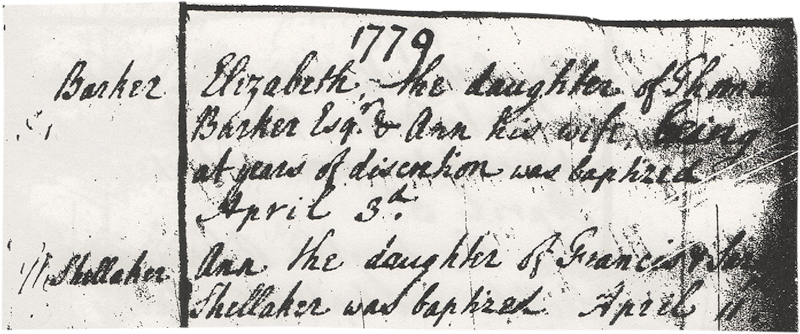 1779
Barker Elizabeth, the daughter of Thomas
Barker Esqr. & Ann his wife, being
at years of discretion was baptized
April 3d.
Shellaker Ann the daughter of Francis &
Shellaker was baptized April 11